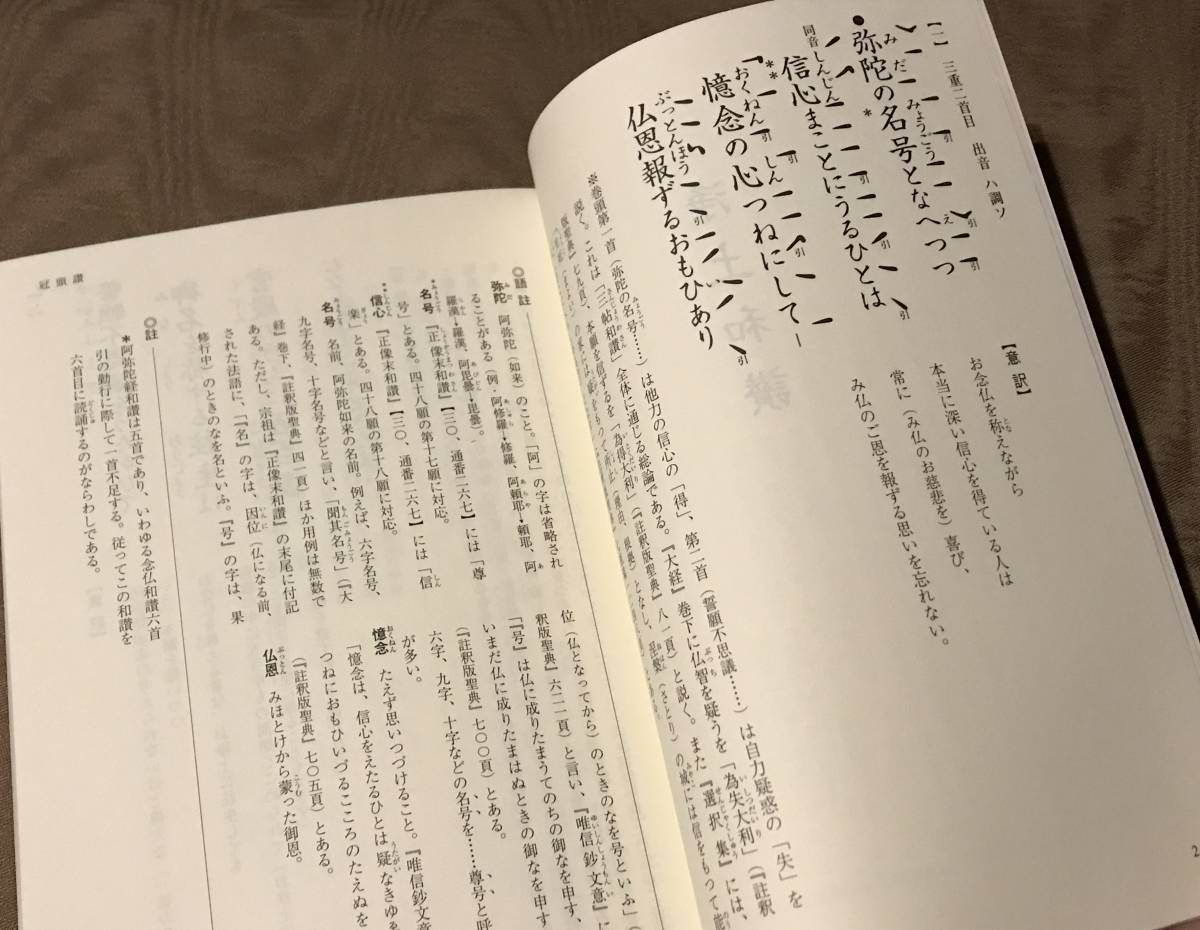 【一】 三重二首目 出音 ハ調ソ
弥陀の名号となへつつ
同音 信心まことにうるひとは
憶念の心つねにして
仏恩報ずるおもひあり
【意訳】
お念仏を称えながら
本当に深い信心を得ている人は
常に(み仏のお慈悲を)喜び、
み仏のご恩を報ずる思いを忘れない。
※巻頭第一首(弥陀の名号……)は他力の信心の「得」、第二首(誓願不思議……)は自力疑惑の「失」を
説く。これは「三帖和讃」全体に通じる総論である。『大経』巻下に仏智を疑うを「為失大利」(『註釈
版聖典』七九頁)、本願を信ずるを「為得大利」(『註釈版聖典』八一頁)と説く。また『選択集』には、
2
◎語註
弥陀 阿弥陀(如来)のこと。「阿」の字は省略され
ることがある(例・阿修羅→修羅、阿頼耶→頼耶、阿
羅漢→羅漢、阿毘曇→毘曇)。
名号 『正像末和讃』【三〇、通番二六七】には「尊
号」とある。四十八願の第十七願に対応。
*信心 『正像末和讃』【三〇、通番二六七】には「信
楽」とある。四十八願の第十八願に対応。
名号 名前、阿弥陀如来の名前。例えば、六字名号、
九字名号、十字名号などと言い、「聞其名号」(『大
経』巻下、『註釈版聖典』四一頁)ほか用例は無数で
ある。ただし、宗祖は『正像末和讃』の末尾に付記
された法語に、「『名』の字は、因位(仏になる前、
修行中)のときのなを名といふ。『号』の字は、果
位(仏となってから)のときのなを号といふ」(
釈版聖典』六二一頁)と言い、『唯信鈔文意』に
「『号』は仏に成りたまうてのちの御なを申す、
いまだ仏に成りたまはぬときの御なを申す
(『註釈版聖典』七〇〇頁)とある。
六字、九字、十字などの名号を……尊号と呼
が多い。
憶念 たえず思いつづけること。『唯信鈔文意
「憶念は、信心をえたるひとは疑なきゆゑ
つねにおもひいづるこころのたえぬを
(『註釈版聖典』七〇五頁)とある。
仏恩 みほとけから蒙った御恩。
◎註
*阿弥陀経和讃は五首であり、いわゆる念仏和讃六首
引の勤行に際して一首不足する。従ってこの和讃を
六首目に読誦するのがならわしである。
冠頭讃